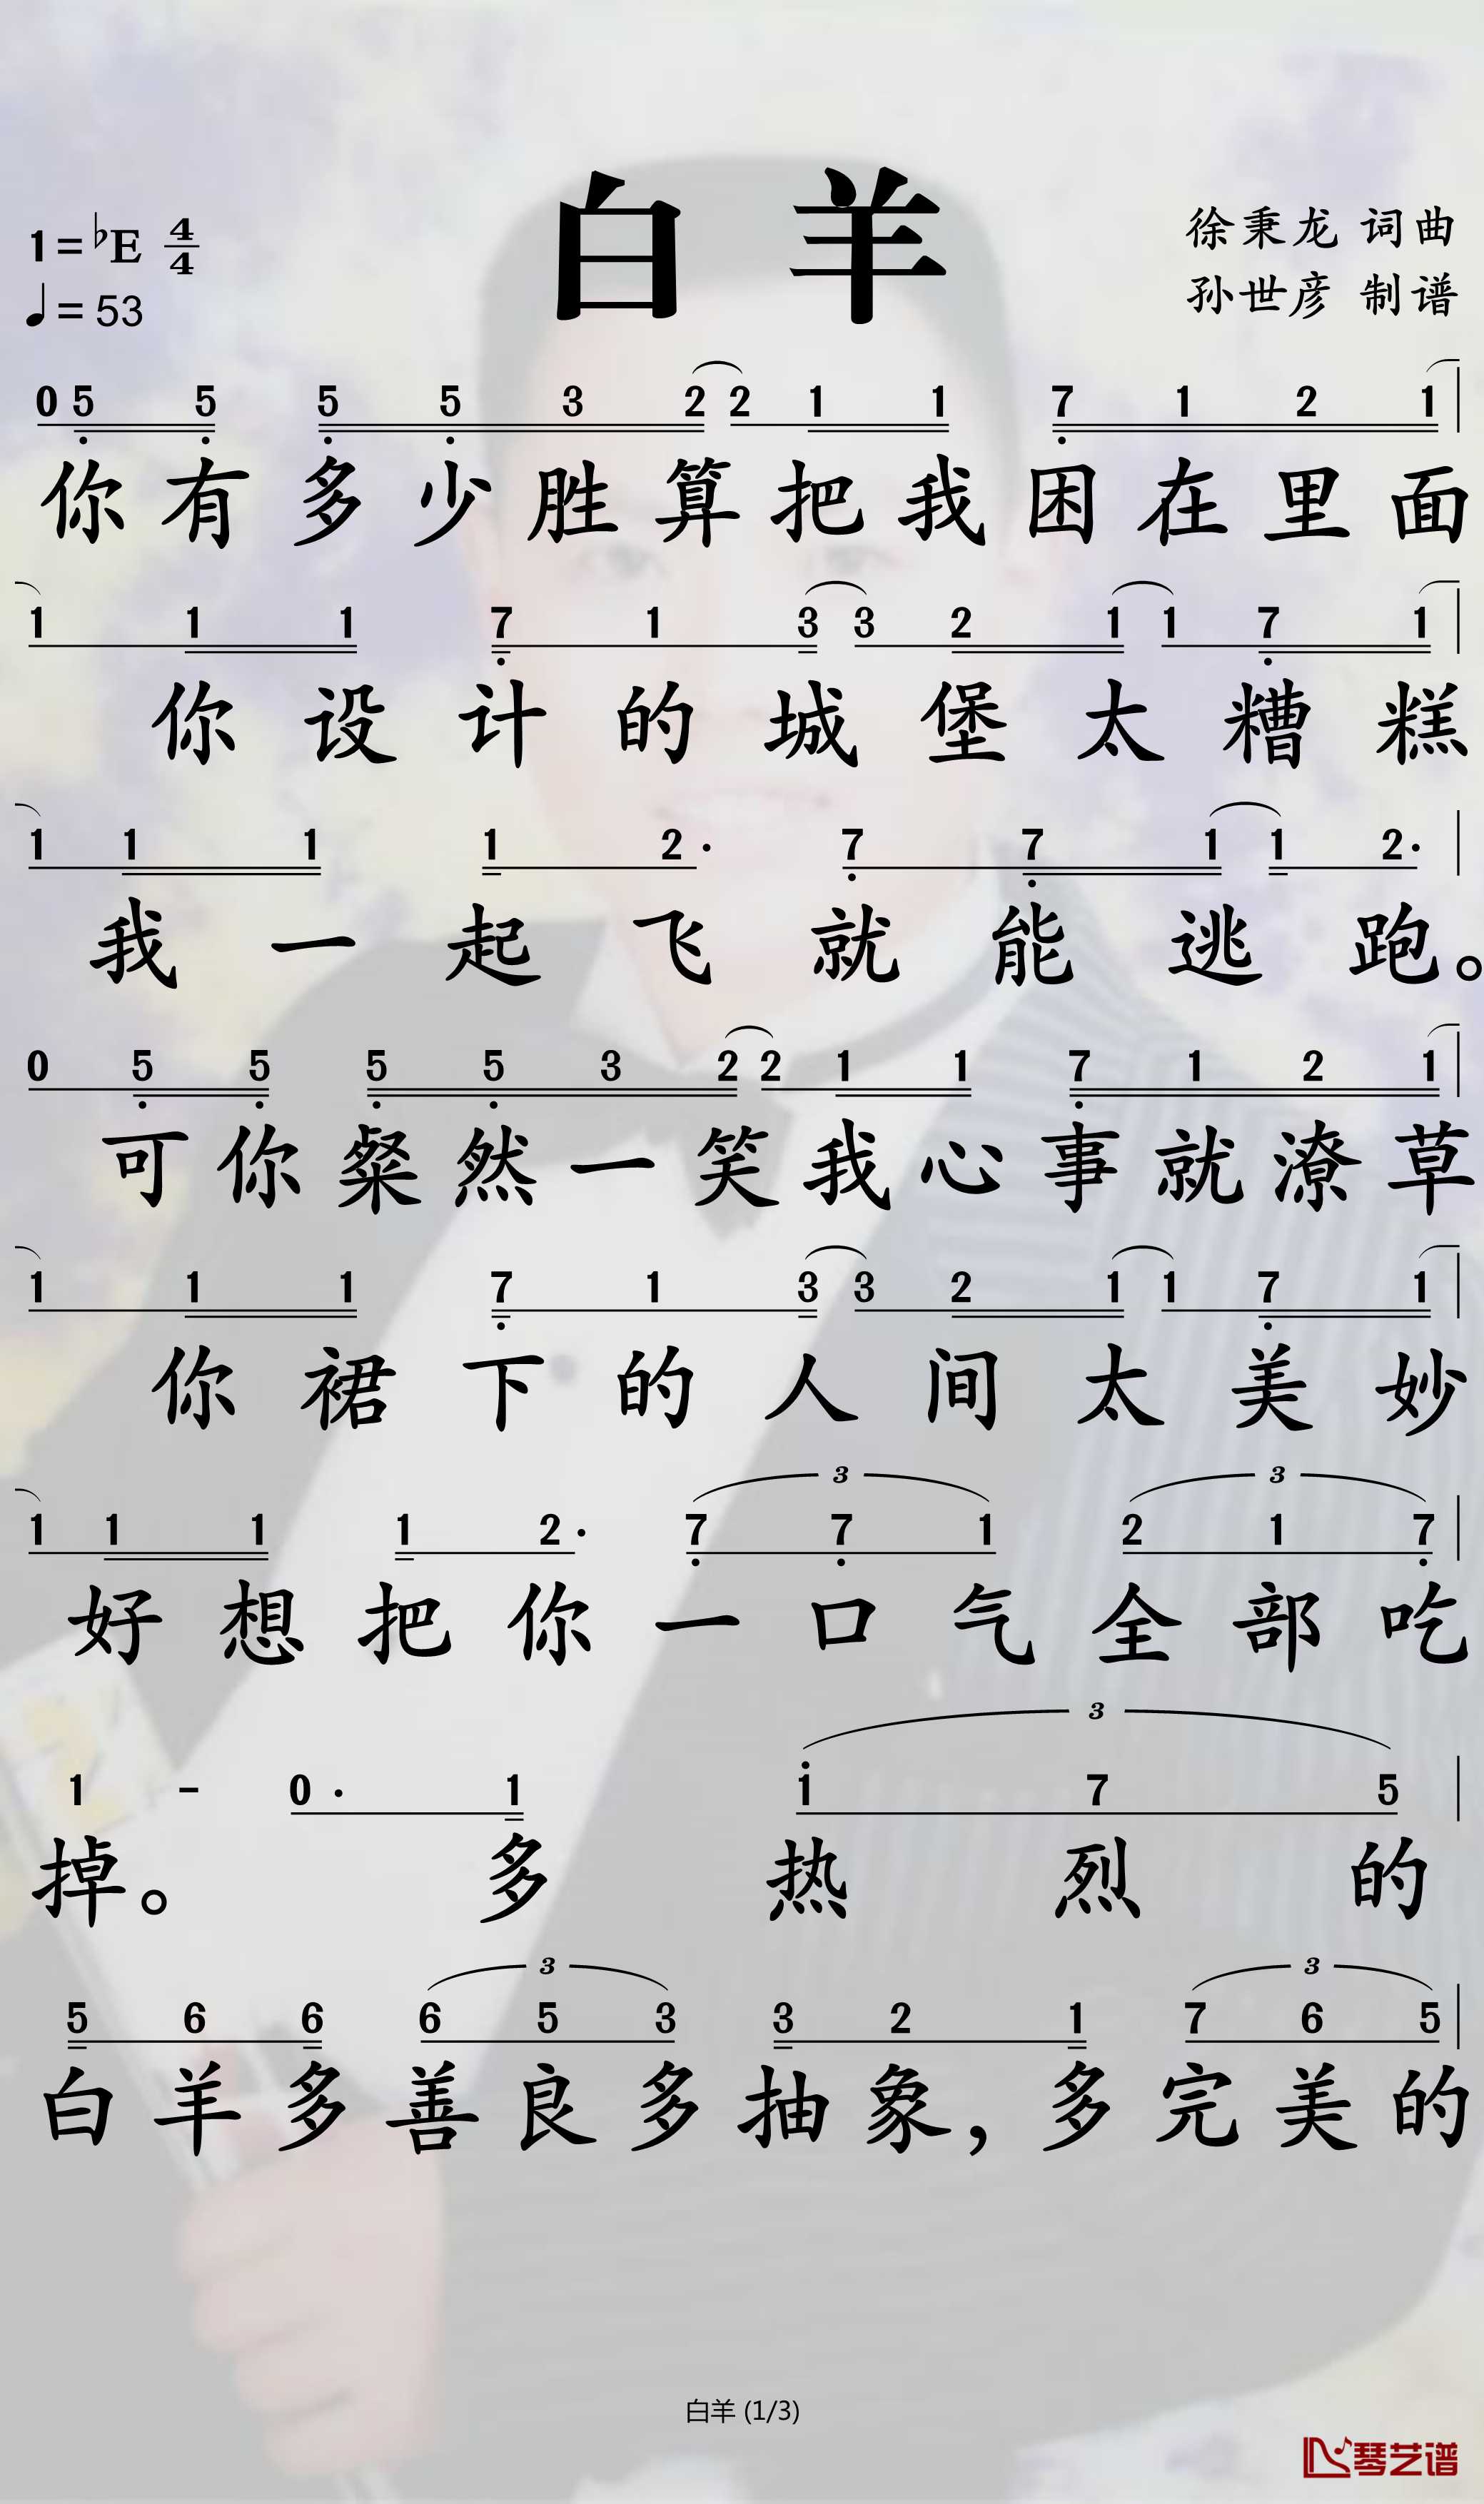 白羊
1=♭E 4/4
♩=53
徐秉龙 词曲
孙世彦 制谱
0 5 5 5 5 3 2 2 1 1 7 1 2 1
你有多少胜算把我困在里面
1 1 1 7 1 3 3 2 1 1 7 1
你设计的城堡太糟糕
1 1 1 1 2· 7 7 1 1 2·
我一起飞就能逃跑。
0 5 5 5 5 3 2 2 1 1 7 1 2 1
可你粲然一笑我心事就潦草
1 1 1 7 1 3 3 2 1 1 7 1
你裙下的人间太美妙
3 3
1 1 1 1 2· 7 7 1 2 1 7
好想把你一口气全部吃
3
1 - 0· 1 1 7 5
掉。多热烈的
3 3
5 6 6 6 5 3 3 2 1 7 6 5
白羊多善良多抽象，多完美的
白羊 (1/3)
琴艺谱